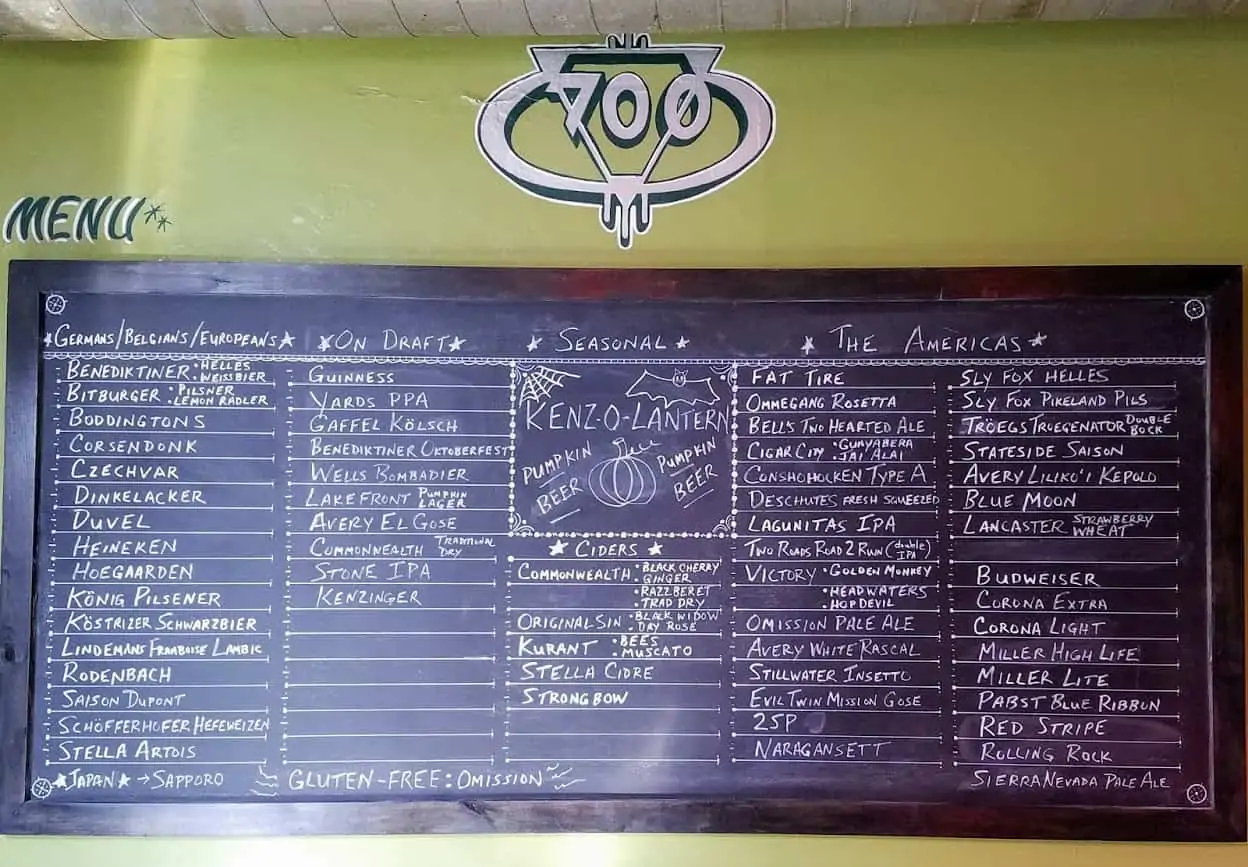 700
MENU
★GERMANS/BELGIANS/EUROPEANS★
BENEDIKTINER • HELLES
• WEISSBIER
BITBURGER • PILSNER
• LEMON RADLER
BODDINGTONS
CORSENDONK
CZECHVAR
DINKELACKER
DUVEL
HEINEKEN
HOEGAARDEN
KÖNIG PILSENER
KÖSTRIZER SCHWARZBIER
LINDEMANS FRAMBOISE LAMBIC
RODENBACH
SAISON DUPONT
SCHÖFFERHOFER HEFEWEIZEN
STELLA ARTOIS
★JAPAN★ → SAPPORO
★ON DRAFT★
GUINNESS
YARDS PPA
GAFFEL KÖLSCH
BENEDIKTINER OKTOBERFEST
WELLS BOMBADIER
LAKEFRONT PUMPKIN
LAGER
AVERY EL GOSE
COMMONWEALTH TRADITIONAL
DRY
STONE IPA
KENZINGER
GLUTEN-FREE: OMISSION
★ SEASONAL ★
KENZ-O-LANTERN
PUMPKIN
BEER
PUMPKIN
BEER
★ CIDERS ★
COMMONWEALTH • BLACK CHERRY
• GINGER
• RAZZBERET
• TRAD DRY
ORIGINAL SIN • BLACK WIDOW
• DRY ROSÉ
KURANT • BEES
• MUSCATO
STELLA CIDRE
STRONGBOW
★ THE AMERICAS ★
FAT TIRE
OMMEGANG ROSETTA
BELL'S TWO HEARTED ALE
CIGAR CITY • GUAYABERA
• JAI ALAI
CONSHOHOCKEN TYPE A
DESCHUTES FRESH SQUEEZED
LAGUNITAS IPA
TWO ROADS ROAD 2 RUIN (double)
IPA
VICTORY • GOLDEN MONKEY
• HEADWATERS
• HOP DEVIL
OMISSION PALE ALE
AVERY WHITE RASCAL
STILLWATER INSETTO
EVIL TWIN MISSION GOSE
25P
NARAGANSETT
SLY FOX HELLES
SLY FOX PIKELAND PILS
TRÖEGS TROEGENATOR DOUBLE
BOCK
STATESIDE SAISON
AVERY LILIKO'I KEPOLO
BLUE MOON
LANCASTER STRAWBERRY
WHEAT
BUDWEISER
CORONA EXTRA
CORONA LIGHT
MILLER HIGH LIFE
MILLER LITE
PABST BLUE RIBBON
RED STRIPE
ROLLING ROCK
SIERRA NEVADA PALE ALE